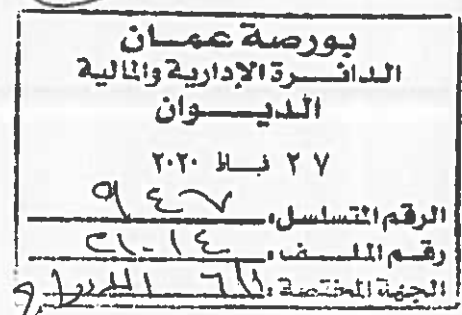 بورصة عمان
الدائرة الإدارية والمالية
الديوان
٢٧ شباط ٢٠٢٠
الرقم المتسلسل: ٩٤٧
رقم الملف: ٢١-١٤
الجهة المختصة: